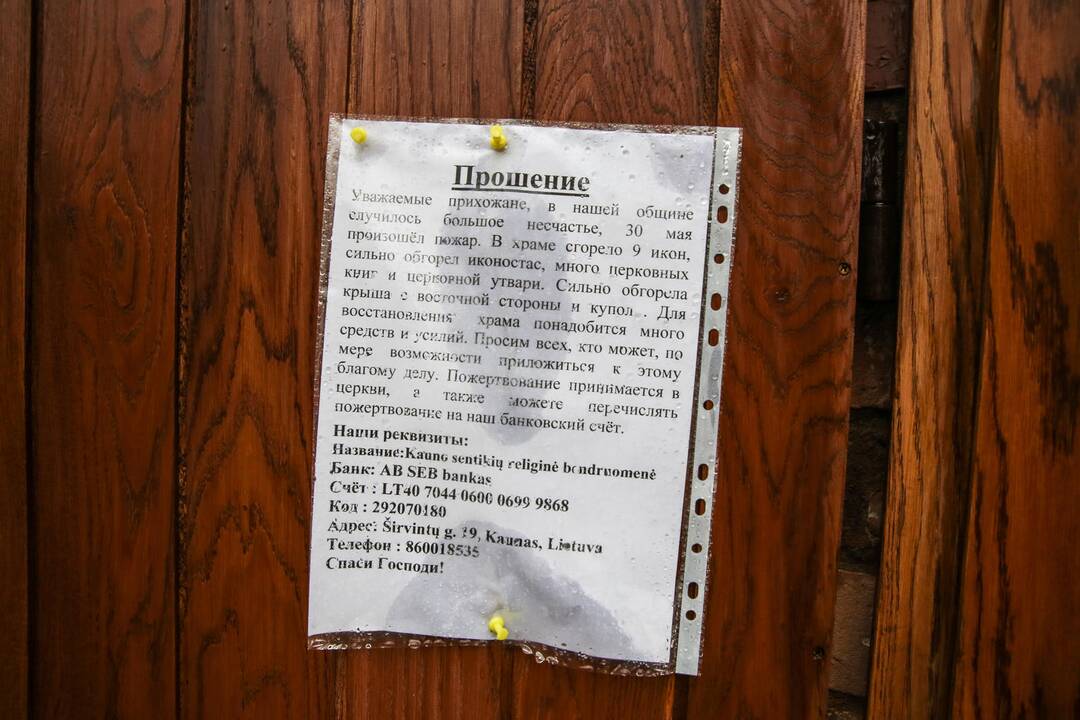 Прошение
Уважаемые прихожане, в нашей общине
случилось большое несчастье, 30 мая
произошёл пожар. В храме сгорело 9 икон,
сильно обгорел иконостас, много церковных
книг и церковной утвари. Сильно обгорела
крыша с восточной стороны и купол . Для
восстановления храма понадобится много
средств и усилий. Просим всех, кто может, по
мере возможности приложиться к этому
благому делу. Пожертвование принимается в
церкви, а также можете перечислять
пожертвование на наш банковский счёт.
Наши реквизиты:
Название:Kauno sentikių religinė bendruomenė
Банк: AB SEB bankas
Счёт : LT40 7044 0600 0699 9868
Код : 292070180
Адрес: Širvintų g. 19, Kaunas, Lietuva
Телефон : 860018535
Спаси Господи!